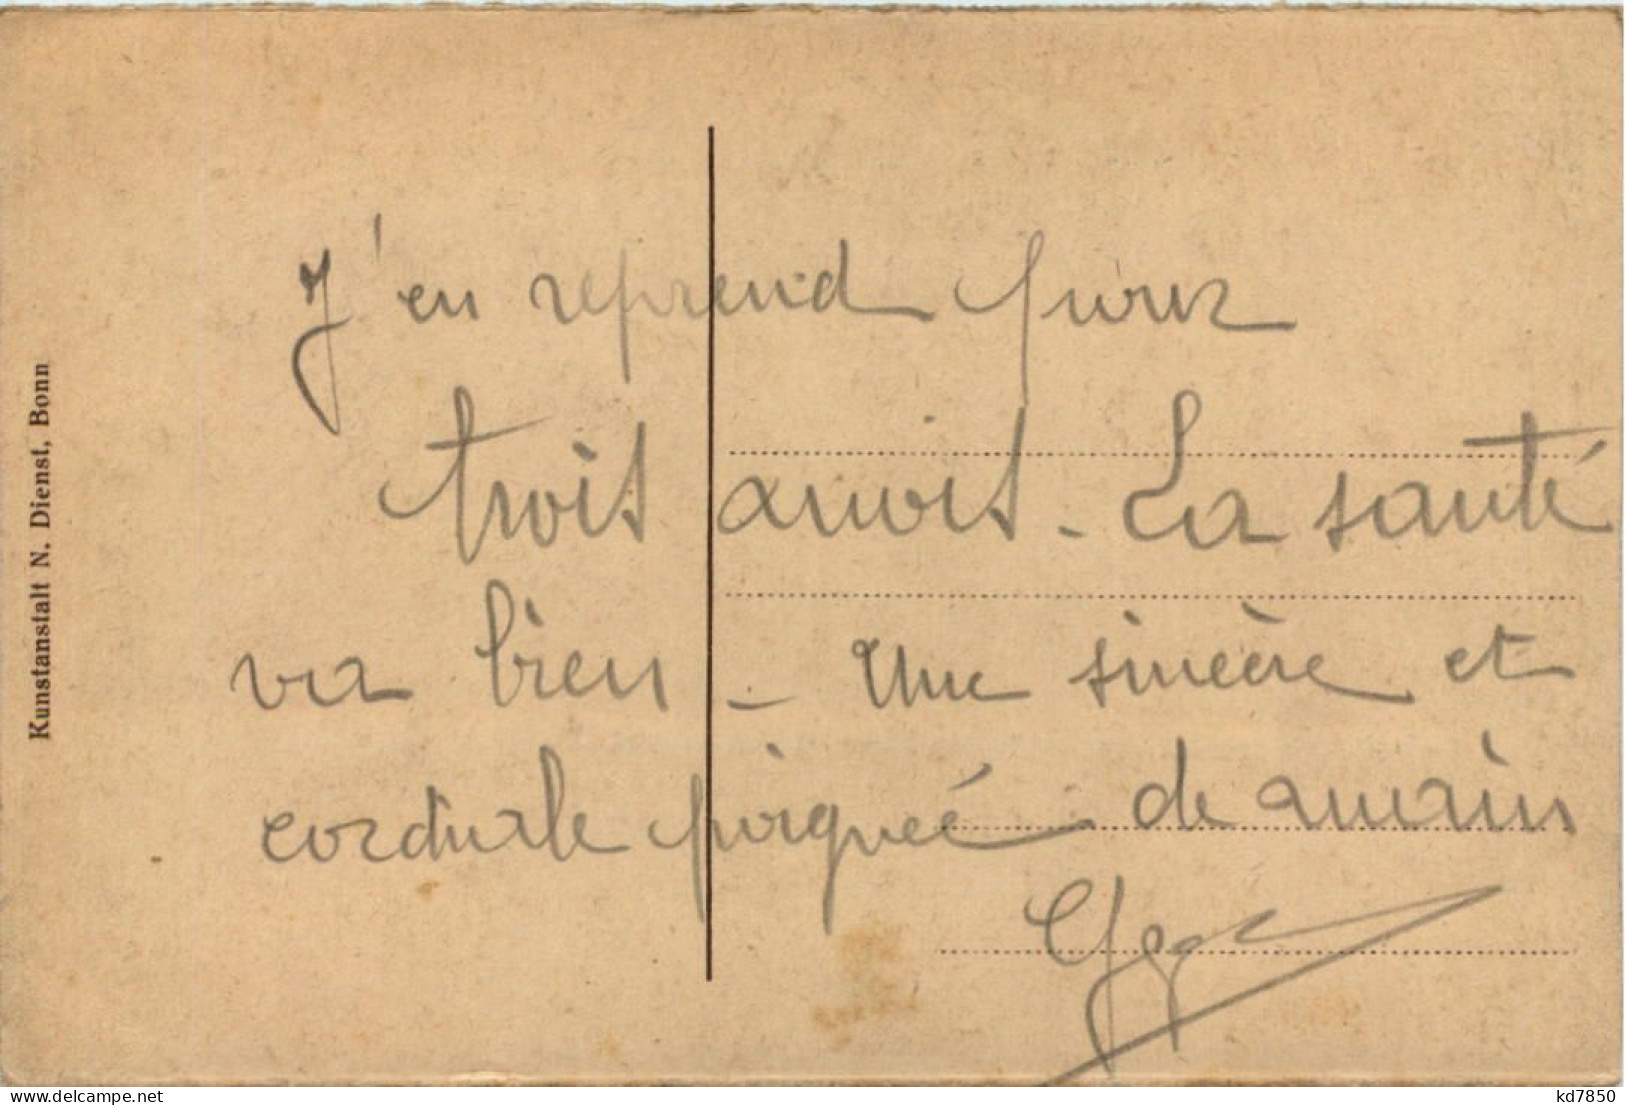 J'en reprend pour
trois mois - La santé
va bien - Une sincère et
cordiale poignée de main
Kunstanstalt N. Dienst, Bonn
kd7850